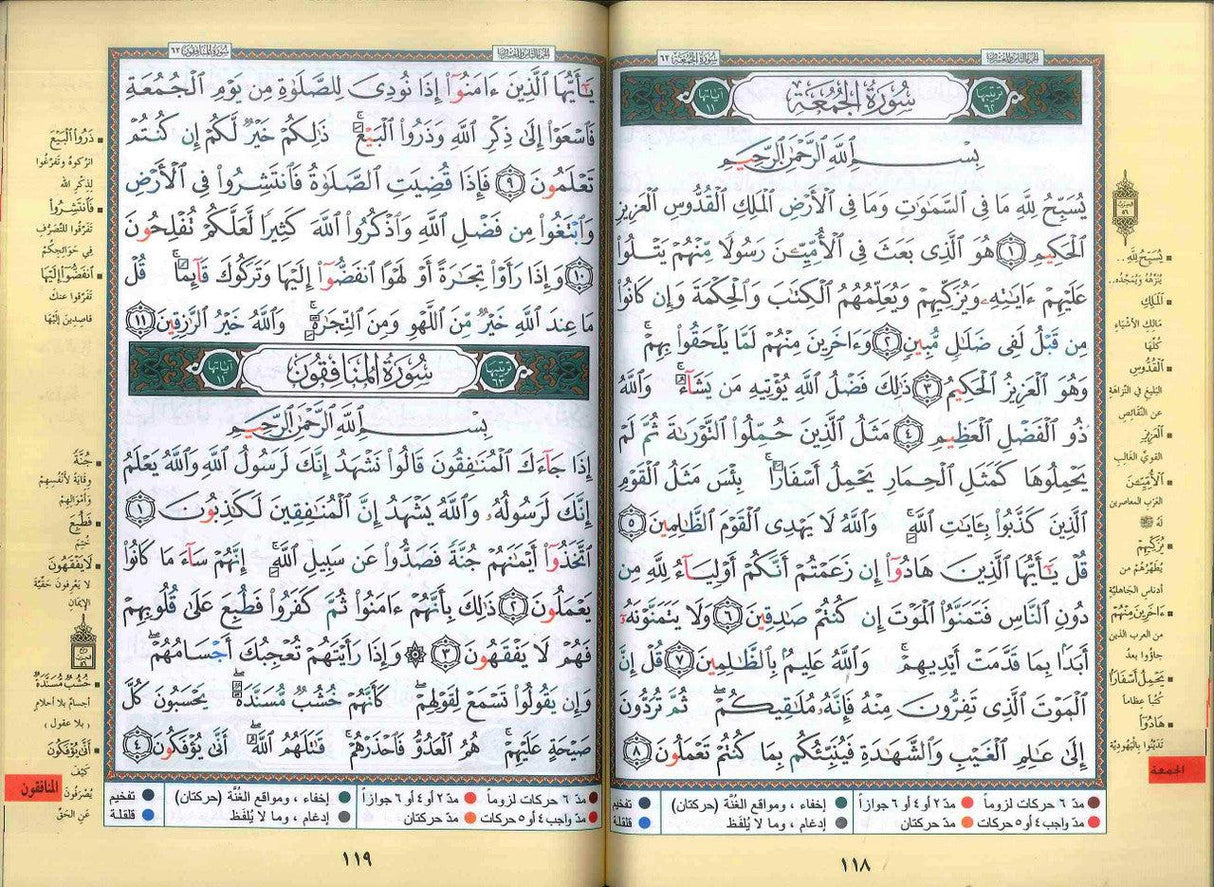 سُورَةُ الجُمُعَة ٦٢
سُورَةُ الجُمُعَةِ
ترتيبها ٦٢
آياتها ١١
بِسْمِ ٱللَّهِ ٱلرَّحْمَٰنِ ٱلرَّحِيمِ
يُسَبِّحُ لِلَّهِ مَا فِي ٱلسَّمَٰوَٰتِ وَمَا فِي ٱلْأَرْضِ ٱلْمَلِكِ ٱلْقُدُّوسِ ٱلْعَزِيزِ
ٱلْحَكِيمِ ١ هُوَ ٱلَّذِى بَعَثَ فِي ٱلْأُمِّيِّـۧنَ رَسُولًا مِّنْهُمْ يَتْلُوا۟
عَلَيْهِمْ ءَايَٰتِهِۦ وَيُزَكِّيهِمْ وَيُعَلِّمُهُمُ ٱلْكِتَٰبَ وَٱلْحِكْمَةَ وَإِن كَانُوا۟
مِن قَبْلُ لَفِى ضَلَٰلٍ مُّبِينٍ ٢ وَءَاخَرِينَ مِنْهُمْ لَمَّا يَلْحَقُوا۟ بِهِمْ ۚ
وَهُوَ ٱلْعَزِيزُ ٱلْحَكِيمُ ٣ ذَٰلِكَ فَضْلُ ٱللَّهِ يُؤْتِيهِ مَن يَشَآءُ ۚ وَٱللَّهُ
ذُو ٱلْفَضْلِ ٱلْعَظِيمِ ٤ مَثَلُ ٱلَّذِينَ حُمِّلُوا۟ ٱلتَّوْرَىٰةَ ثُمَّ لَمْ
يَحْمِلُوهَا كَمَثَلِ ٱلْحِمَارِ يَحْمِلُ أَسْفَارًۢا ۚ بِئْسَ مَثَلُ ٱلْقَوْمِ
ٱلَّذِينَ كَذَّبُوا۟ بِـَٔايَٰتِ ٱللَّهِ ۚ وَٱللَّهُ لَا يَهْدِى ٱلْقَوْمَ ٱلظَّٰلِمِينَ ٥
قُلْ يَٰٓأَيُّهَا ٱلَّذِينَ هَادُوٓا۟ إِن زَعَمْتُمْ أَنَّكُمْ أَوْلِيَآءُ لِلَّهِ مِن
دُونِ ٱلنَّاسِ فَتَمَنَّوُا۟ ٱلْمَوْتَ إِن كُنتُمْ صَٰدِقِينَ ٦ وَلَا يَتَمَنَّوْنَهُۥٓ
أَبَدًۢا بِمَا قَدَّمَتْ أَيْدِيهِمْ ۚ وَٱللَّهُ عَلِيمٌۢ بِٱلظَّٰلِمِينَ ٧ قُلْ إِنَّ
ٱلْمَوْتَ ٱلَّذِى تَفِرُّونَ مِنْهُ فَإِنَّهُۥ مُلَٰقِيكُمْ ۖ ثُمَّ تُرَدُّونَ
إِلَىٰ عَٰلِمِ ٱلْغَيْبِ وَٱلشَّهَٰدَةِ فَيُنَبِّئُكُم بِمَا كُنتُمْ تَعْمَلُونَ ٨
يُسَبِّحُ لِلَّهِ..
يُنَزِّهُهُ وَيُمَجِّدُه..
الْمَلِكِ
مَالِكِ الأشْيَاءِ
كُلِّهَا
الْقُدُّوسِ
البَلِيغِ فِي النَّزَاهَةِ
عن النَّقَائِصِ
الْعَزِيزِ
القَوِيِّ الغَالِبِ
الْأُمِّيِّـۧنَ
العَرَبِ المعاصِرين
لَهُ ﷺ
يُزَكِّيهِمْ
يُطَهِّرُهُمْ من
أدناسِ الجَاهليَّة
ءَاخَرِينَ مِنْهُمْ
من العرب الذين
جاؤوا بعدُ
يَحْمِلُ أَسْفَارًا
كُتُباً عِظَاماً
هَادُوٓا
تَدَيَّنُوا باليَهُودِيَّةِ
الجمعة
مدّ ٦ حركات لزوماً
مدّ ٢ أو ٤ أو ٦ جوازاً
إخفاء ، ومواقع الغُنَّة (حركتان)
تفخيم
مدّ واجب ٤ أو ٥ حركات
مدّ حركتان
إدغام ، وما لا يُلفَظ
قلقلة
١١٨
سُورَةُ المُنَافِقُونَ ٦٣
يَٰٓأَيُّهَا ٱلَّذِينَ ءَامَنُوٓا۟ إِذَا نُودِىَ لِلصَّلَوٰةِ مِن يَوْمِ ٱلْجُمُعَةِ
فَٱسْعَوْا۟ إِلَىٰ ذِكْرِ ٱللَّهِ وَذَرُوا۟ ٱلْبَيْعَ ۚ ذَٰلِكُمْ خَيْرٌ لَّكُمْ إِن كُنتُمْ
تَعْلَمُونَ ٩ فَإِذَا قُضِيَتِ ٱلصَّلَوٰةُ فَٱنتَشِرُوا۟ فِي ٱلْأَرْضِ
وَٱبْتَغُوا۟ مِن فَضْلِ ٱللَّهِ وَٱذْكُرُوا۟ ٱللَّهَ كَثِيرًا لَّعَلَّكُمْ تُفْلِحُونَ
١٠ وَإِذَا رَأَوْا۟ تِجَٰرَةً أَوْ لَهْوًا ٱنفَضُّوٓا۟ إِلَيْهَا وَتَرَكُوكَ قَآئِمًا ۚ قُلْ
مَا عِندَ ٱللَّهِ خَيْرٌ مِّنَ ٱللَّهْوِ وَمِنَ ٱلتِّجَٰرَةِ ۚ وَٱللَّهُ خَيْرُ ٱلرَّٰزِقِينَ ١١
سُورَةُ المُنَافِقُونَ
ترتيبها ٦٣
آياتها ١١
بِسْمِ ٱللَّهِ ٱلرَّحْمَٰنِ ٱلرَّحِيمِ
إِذَا جَآءَكَ ٱلْمُنَٰفِقُونَ قَالُوا۟ نَشْهَدُ إِنَّكَ لَرَسُولُ ٱللَّهِ وَٱللَّهُ يَعْلَمُ
إِنَّكَ لَرَسُولُهُۥ وَٱللَّهُ يَشْهَدُ إِنَّ ٱلْمُنَٰفِقِينَ لَكَٰذِبُونَ ١
ٱتَّخَذُوٓا۟ أَيْمَٰنَهُمْ جُنَّةً فَصَدُّوا۟ عَن سَبِيلِ ٱللَّهِ ۚ إِنَّهُمْ سَآءَ مَا كَانُوا۟
يَعْمَلُونَ ٢ ذَٰلِكَ بِأَنَّهُمْ ءَامَنُوا۟ ثُمَّ كَفَرُوا۟ فَطُبِعَ عَلَىٰ قُلُوبِهِمْ
فَهُمْ لَا يَفْقَهُونَ ٣ ۞ وَإِذَا رَأَيْتَهُمْ تُعْجِبُكَ أَجْسَامُهُمْ ۖ
وَإِن يَقُولُوا۟ تَسْمَعْ لِقَوْلِهِمْ ۖ كَأَنَّهُمْ خُشُبٌ مُّسَنَّدَةٌ ۖ يَحْسَبُونَ كُلَّ
صَيْحَةٍ عَلَيْهِمْ ۚ هُمُ ٱلْعَدُوُّ فَٱحْذَرْهُمْ ۚ قَٰتَلَهُمُ ٱللَّهُ ۖ أَنَّىٰ يُؤْفَكُونَ ٤
ذَرُوا الْبَيْعَ
اتْرُكوهُ وتَفَرَّغُوا
لِذِكْرِ الله
فَانتَشِرُوا
تَفَرَّقُوا للتَّصَرُّفِ
فِي حَوَائِجِكُمْ
انفَضُّوٓا إِلَيْهَا
تَفَرَّقوا عنك
قاصِدِينَ إِلَيْهَا
جُنَّةً
وِقَايَةً لأَنْفُسِهِمْ
وَأَمْوَالِهِمْ
فَطُبِعَ
خُتِمَ
لَا يَفْقَهُونَ
لا يَعْرِفونَ حَقِّيَّةَ
الإيمَانِ
خُشُبٌ مُّسَنَّدَةٌ
أجسامٌ بلا أحلام
(بلا عقول)
أَنَّىٰ يُؤْفَكُونَ
كَيْفَ
يُصْرَفُونَ
عَنِ الحَقّ
المنافقون
مدّ ٦ حركات لزوماً
مدّ ٢ أو ٤ أو ٦ جوازاً
إخفاء ، ومواقع الغُنَّة (حركتان)
تفخيم
مدّ واجب ٤ أو ٥ حركات
مدّ حركتان
إدغام ، وما لا يُلفَظ
قلقلة
١١٩